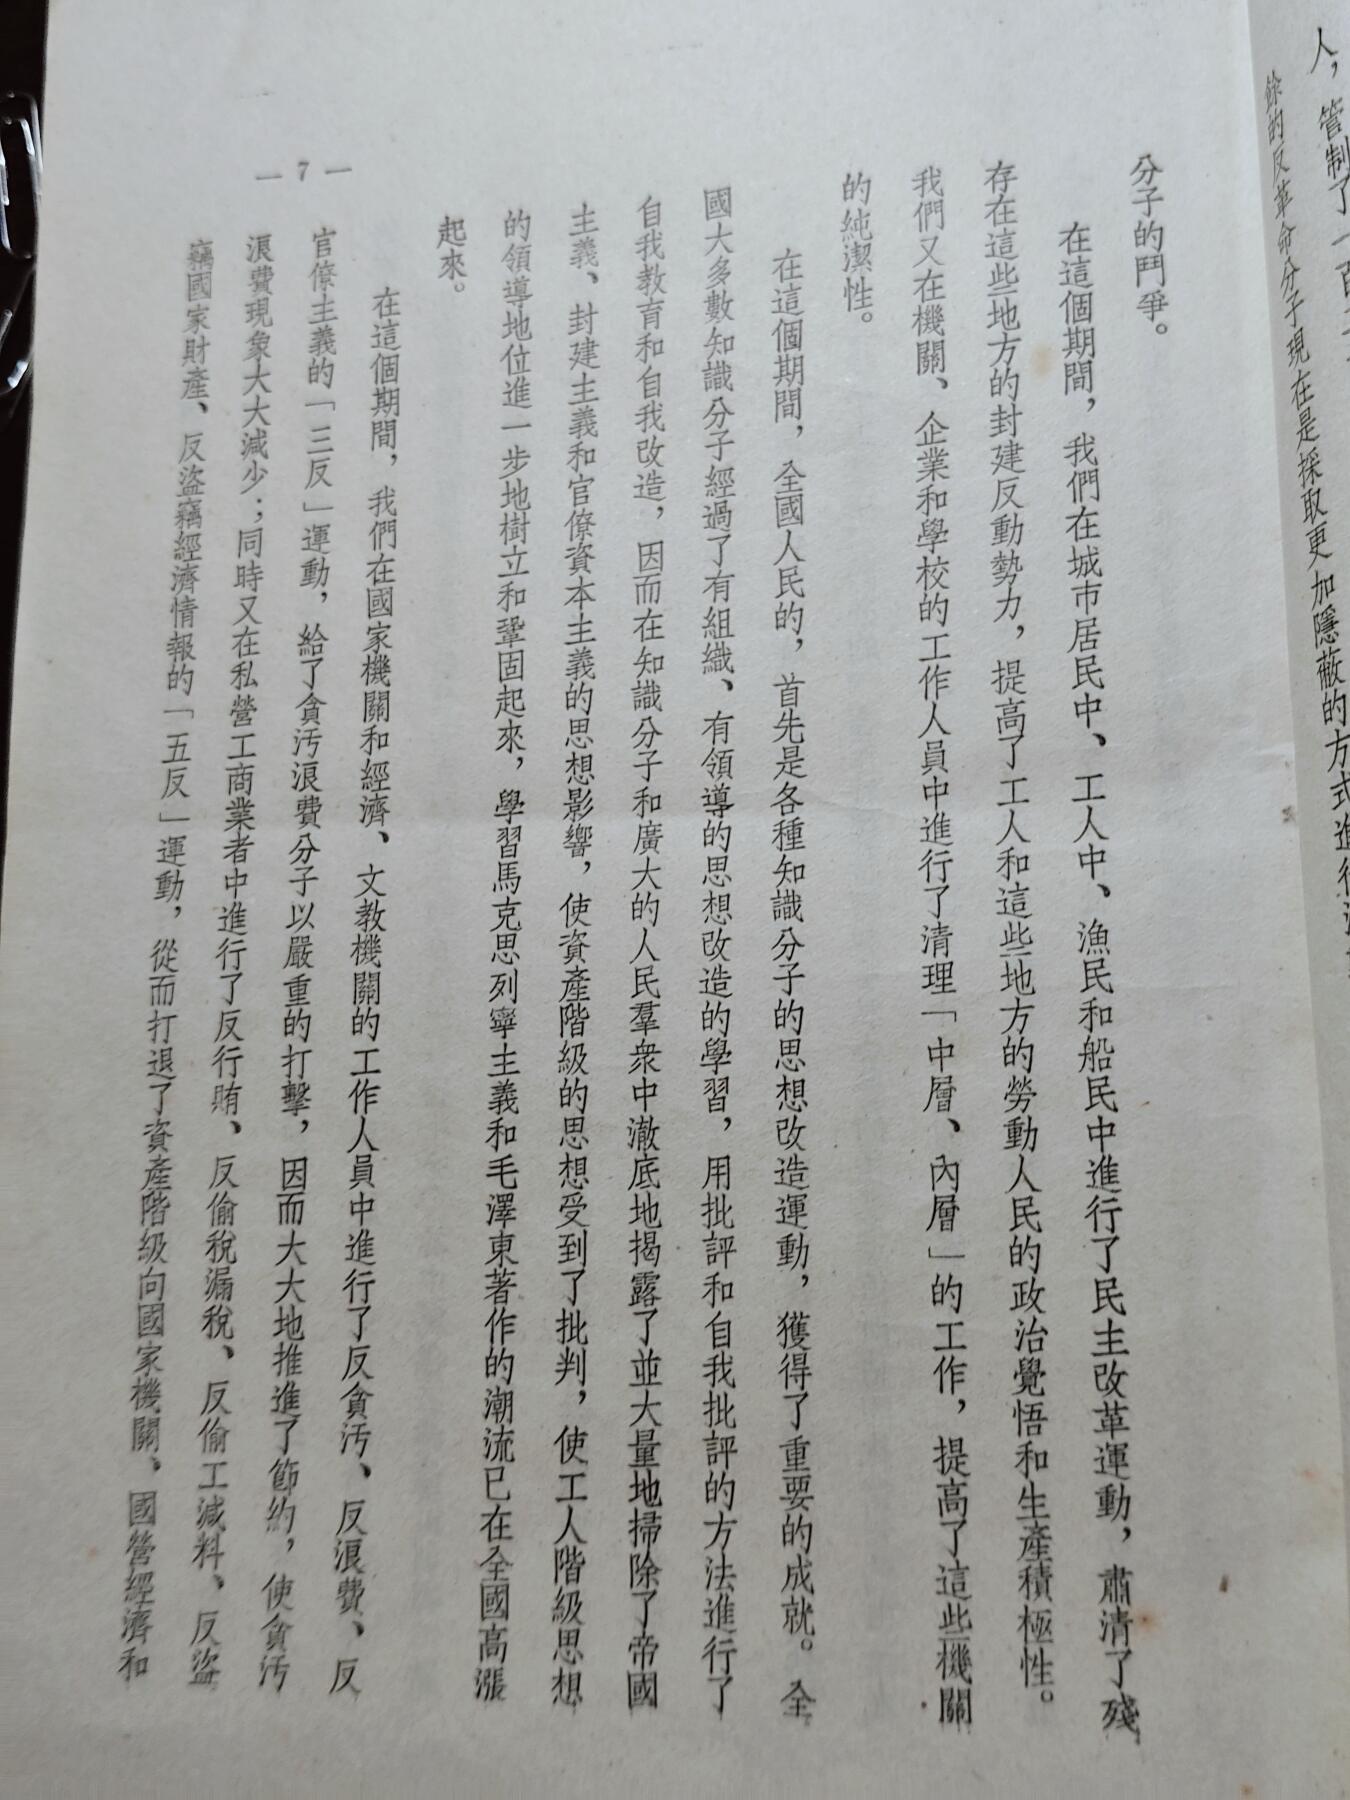 人，管制了一百二
餘的反革命分子現在是採取更加隱蔽的方式進行
分子的鬥爭。
在這個期間，我們在城市居民中、工人中、漁民和船民中進行了民主改革運動，肅清了殘
存在這些地方的封建反動勢力，提高了工人和這些地方的勞動人民的政治覺悟和生產積極性。
我們又在機關、企業和學校的工作人員中進行了清理「中層、內層」的工作，提高了這些機關
的純潔性。
在這個期間，全國人民的，首先是各種知識分子的思想改造運動，獲得了重要的成就。全
國大多數知識分子經過了有組織、有領導的思想改造的學習，用批評和自我批評的方法進行了
自我教育和自我改造，因而在知識分子和廣大的人民羣衆中澈底地揭露了並大量地掃除了帝國
主義、封建主義和官僚資本主義的思想影響，使資產階級的思想受到了批判，使工人階級思想
的領導地位進一步地樹立和鞏固起來，學習馬克思列寧主義和毛澤東著作的潮流已在全國高漲
起來。
在這個期間，我們在國家機關和經濟、文教機關的工作人員中進行了反貪汚、反浪費、反
官僚主義的「三反」運動，給了貪汚浪費分子以嚴重的打擊，因而大大地推進了節約，使貪汚
浪費現象大大減少；同時又在私營工商業者中進行了反行賄、反偷稅漏稅、反偷工減料、反盜
竊國家財產、反盜竊經濟情報的「五反」運動，從而打退了資產階級向國家機關、國營經濟和
— 7 —